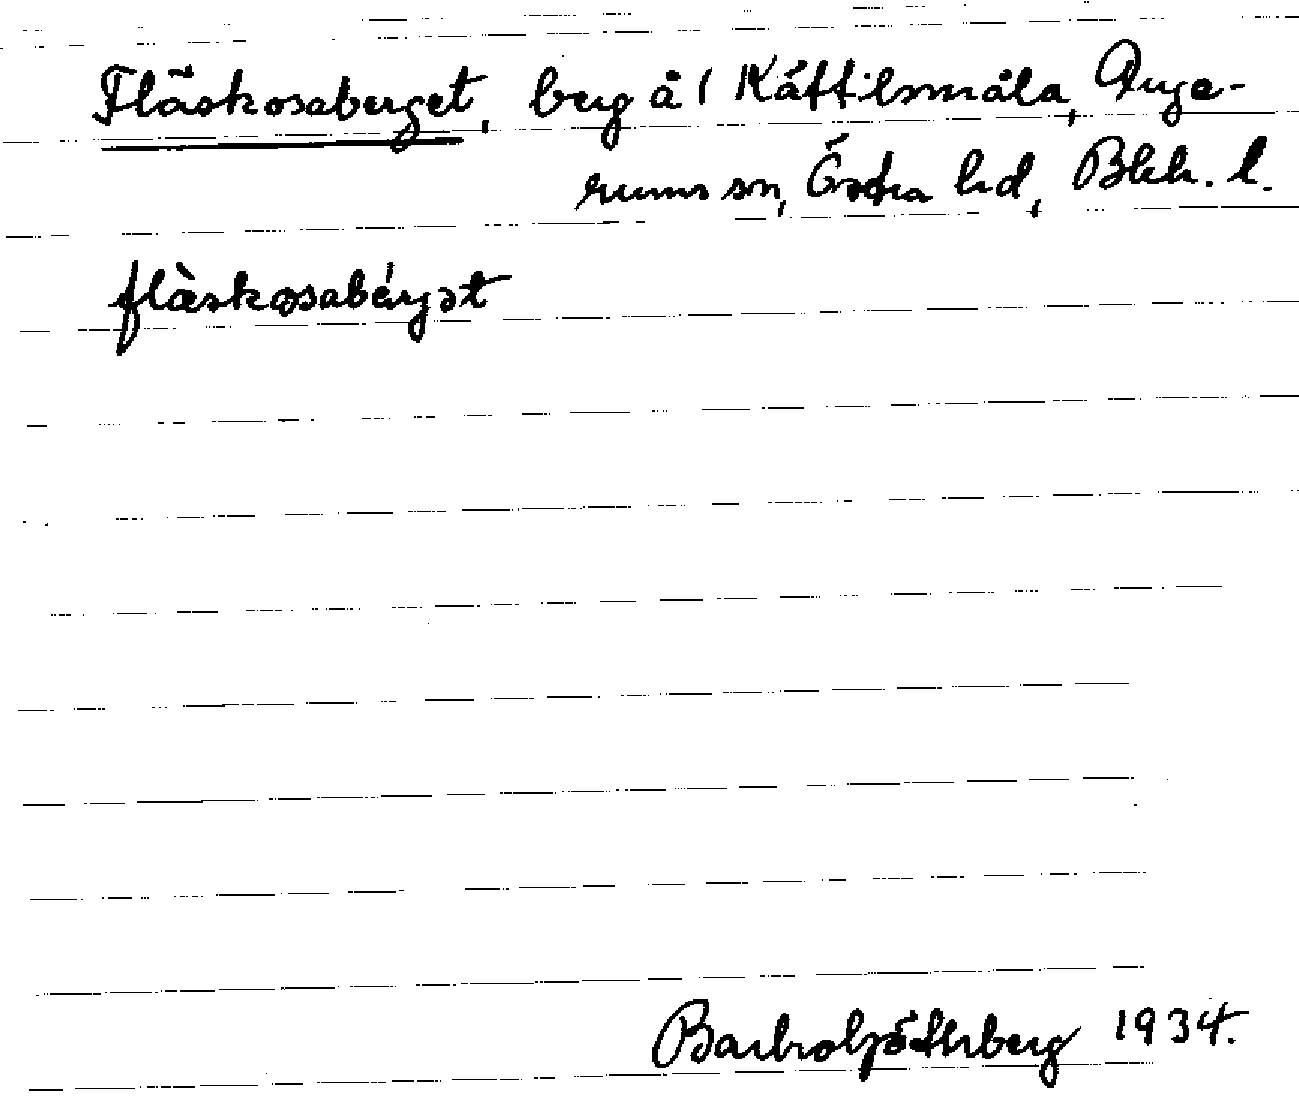 Fläskosaberget, berg å 1 Kättilsmåla, Auge-
rums sn, Östra hd, Blek. l.
flàskosabérgət
Barbro Söderberg 1934.